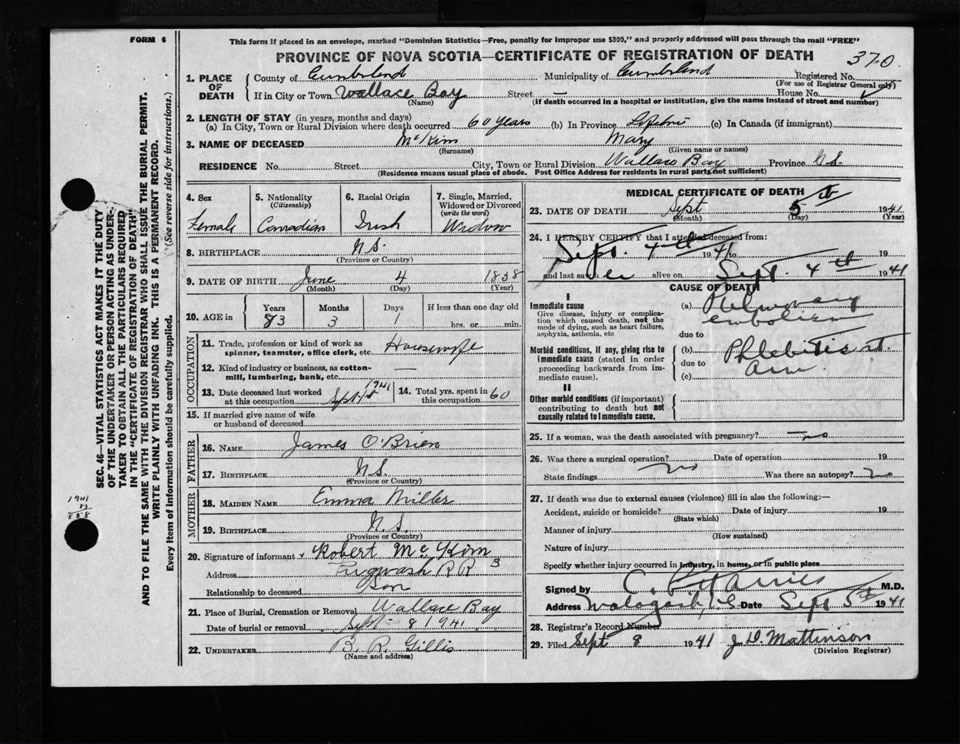 FORM 6
This form if placed in an envelope, marked "Dominion Statistics—Free, penalty for improper use $300," and properly addressed will pass through the mail "FREE"
PROVINCE OF NOVA SCOTIA—CERTIFICATE OF REGISTRATION OF DEATH
370
1. PLACE OF DEATH
County of Cumberland Municipality of Cumberland Registered No.
(For use of Registrar General only)
If in City or Town Wallace Bay Street — House No.
(Name) (If death occurred in a hospital or institution, give the name instead of street and number)
2. LENGTH OF STAY (in years, months and days)
(a) In City, Town or Rural Division where death occurred 60 years (b) In Province Lifetime (c) In Canada (if immigrant)
3. NAME OF DECEASED McKim Mary
(Surname) (Given name or names)
RESIDENCE No. Street City, Town or Rural Division Wallace Bay Province N.S.
(Residence means usual place of abode. Post Office Address for residents in rural parts not sufficient)
4. Sex
Female
5. Nationality
(Citizenship)
Canadian
6. Racial Origin
Irish
7. Single, Married, Widowed or Divorced
(write the word)
Widow
8. BIRTHPLACE N.S.
(Province or Country)
9. DATE OF BIRTH June 4 1838
(Month) (Day) (Year)
10. AGE in Years Months Days If less than one day
83 3 1 hrs. or min.
OCCUPATION
11. Trade, profession or kind of work as spinner, teamster, office clerk, etc. Housewife
12. Kind of industry or business, as cotton-mill, lumbering, bank, etc. —
13. Date deceased last worked at this occupation Sept 1941
14. Total yrs. spent in this occupation 60
15. If married give name of wife or husband of deceased
FATHER
16. NAME James O'Brien
17. BIRTHPLACE N.S.
(Province or Country)
MOTHER
18. MAIDEN NAME Emma Miller
19. BIRTHPLACE N.S.
(Province or Country)
20. Signature of informant Robert McKim
Address Pugwash RR 3
Relationship to deceased Son
21. Place of Burial, Cremation or Removal Wallace Bay
Date of burial or removal Sept 8 1941
22. UNDERTAKER B. R. Gillis
(Name and address)
MEDICAL CERTIFICATE OF DEATH
23. DATE OF DEATH Sept 5th 1941
(Month) (Day) (Year)
24. I HEREBY CERTIFY that I attended deceased from:
Sept. 4th 1941 to 19
and last saw her alive on Sept. 4th 1941
CAUSE OF DEATH
I
Immediate cause
Give disease, injury or complication which caused death, not the mode of dying, such as heart failure, asphyxia, asthenia, etc
(a) Pulmonary embolism
due to
Morbid conditions, if any, giving rise to immediate cause (stated in order proceeding backwards from immediate cause).
(b) Phlebitis rt. arm
due to
(c)
II
Other morbid conditions (if important) contributing to death but not causally related to immediate cause.
25. If a woman, was the death associated with pregnancy? no
26. Was there a surgical operation? Date of operation 19
State findings no Was there an autopsy? no
27. If death was due to external causes (violence) fill in also the following:—
Accident, suicide or homicide? Date of injury 19
(State which)
Manner of injury
(How sustained)
Nature of injury
Specify whether injury occurred in industry, in home, or in public place
Signed by M.D.
Address Date Sept 5th 1941
28. Registrar's Record Number
29. Filed Sept 8 1941 J. D. Mattinson
(Division Registrar)
SEC. 46—VITAL STATISTICS ACT MAKES IT THE DUTY
OF THE UNDERTAKER OR PERSON ACTING AS UNDERTAKER TO OBTAIN ALL THE PARTICULARS REQUIRED
IN THE "CERTIFICATE OF REGISTRATION OF DEATH"
AND TO FILE THE SAME WITH THE DIVISION REGISTRAR WHO SHALL ISSUE THE BURIAL PERMIT.
WRITE PLAINLY WITH UNFADING INK. THIS IS A PERMANENT RECORD.
Every item of information should be carefully supplied. (See reverse side for instructions.)
1941